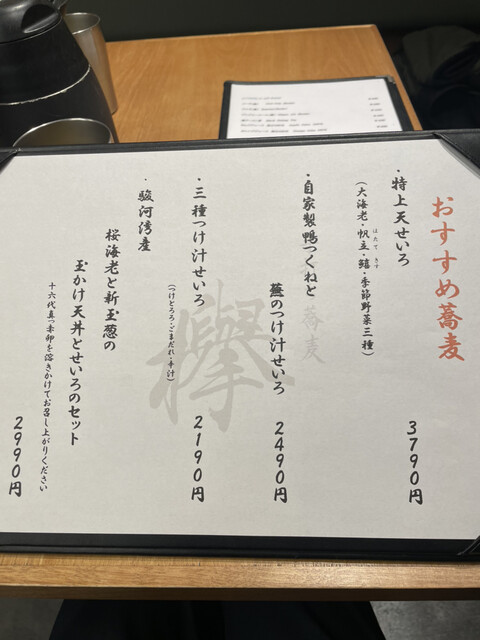 おすすめ蕎麦
・特上天せいろ
3790円
（大海老・帆立・鱚・季節野菜三種）
ほたて
きす
・自家製鴨つくねと
蕪のつけ汁せいろ
2490円
・三種つけ汁せいろ
2190円
（つけとろろ・ごまだれ・辛汁）
・駿河湾産
桜海老と新玉葱の
玉かけ天丼とせいろのセット
十六代真っ赤卵を溶きかけてお召し上がりください
2990円
蕎麦
欅